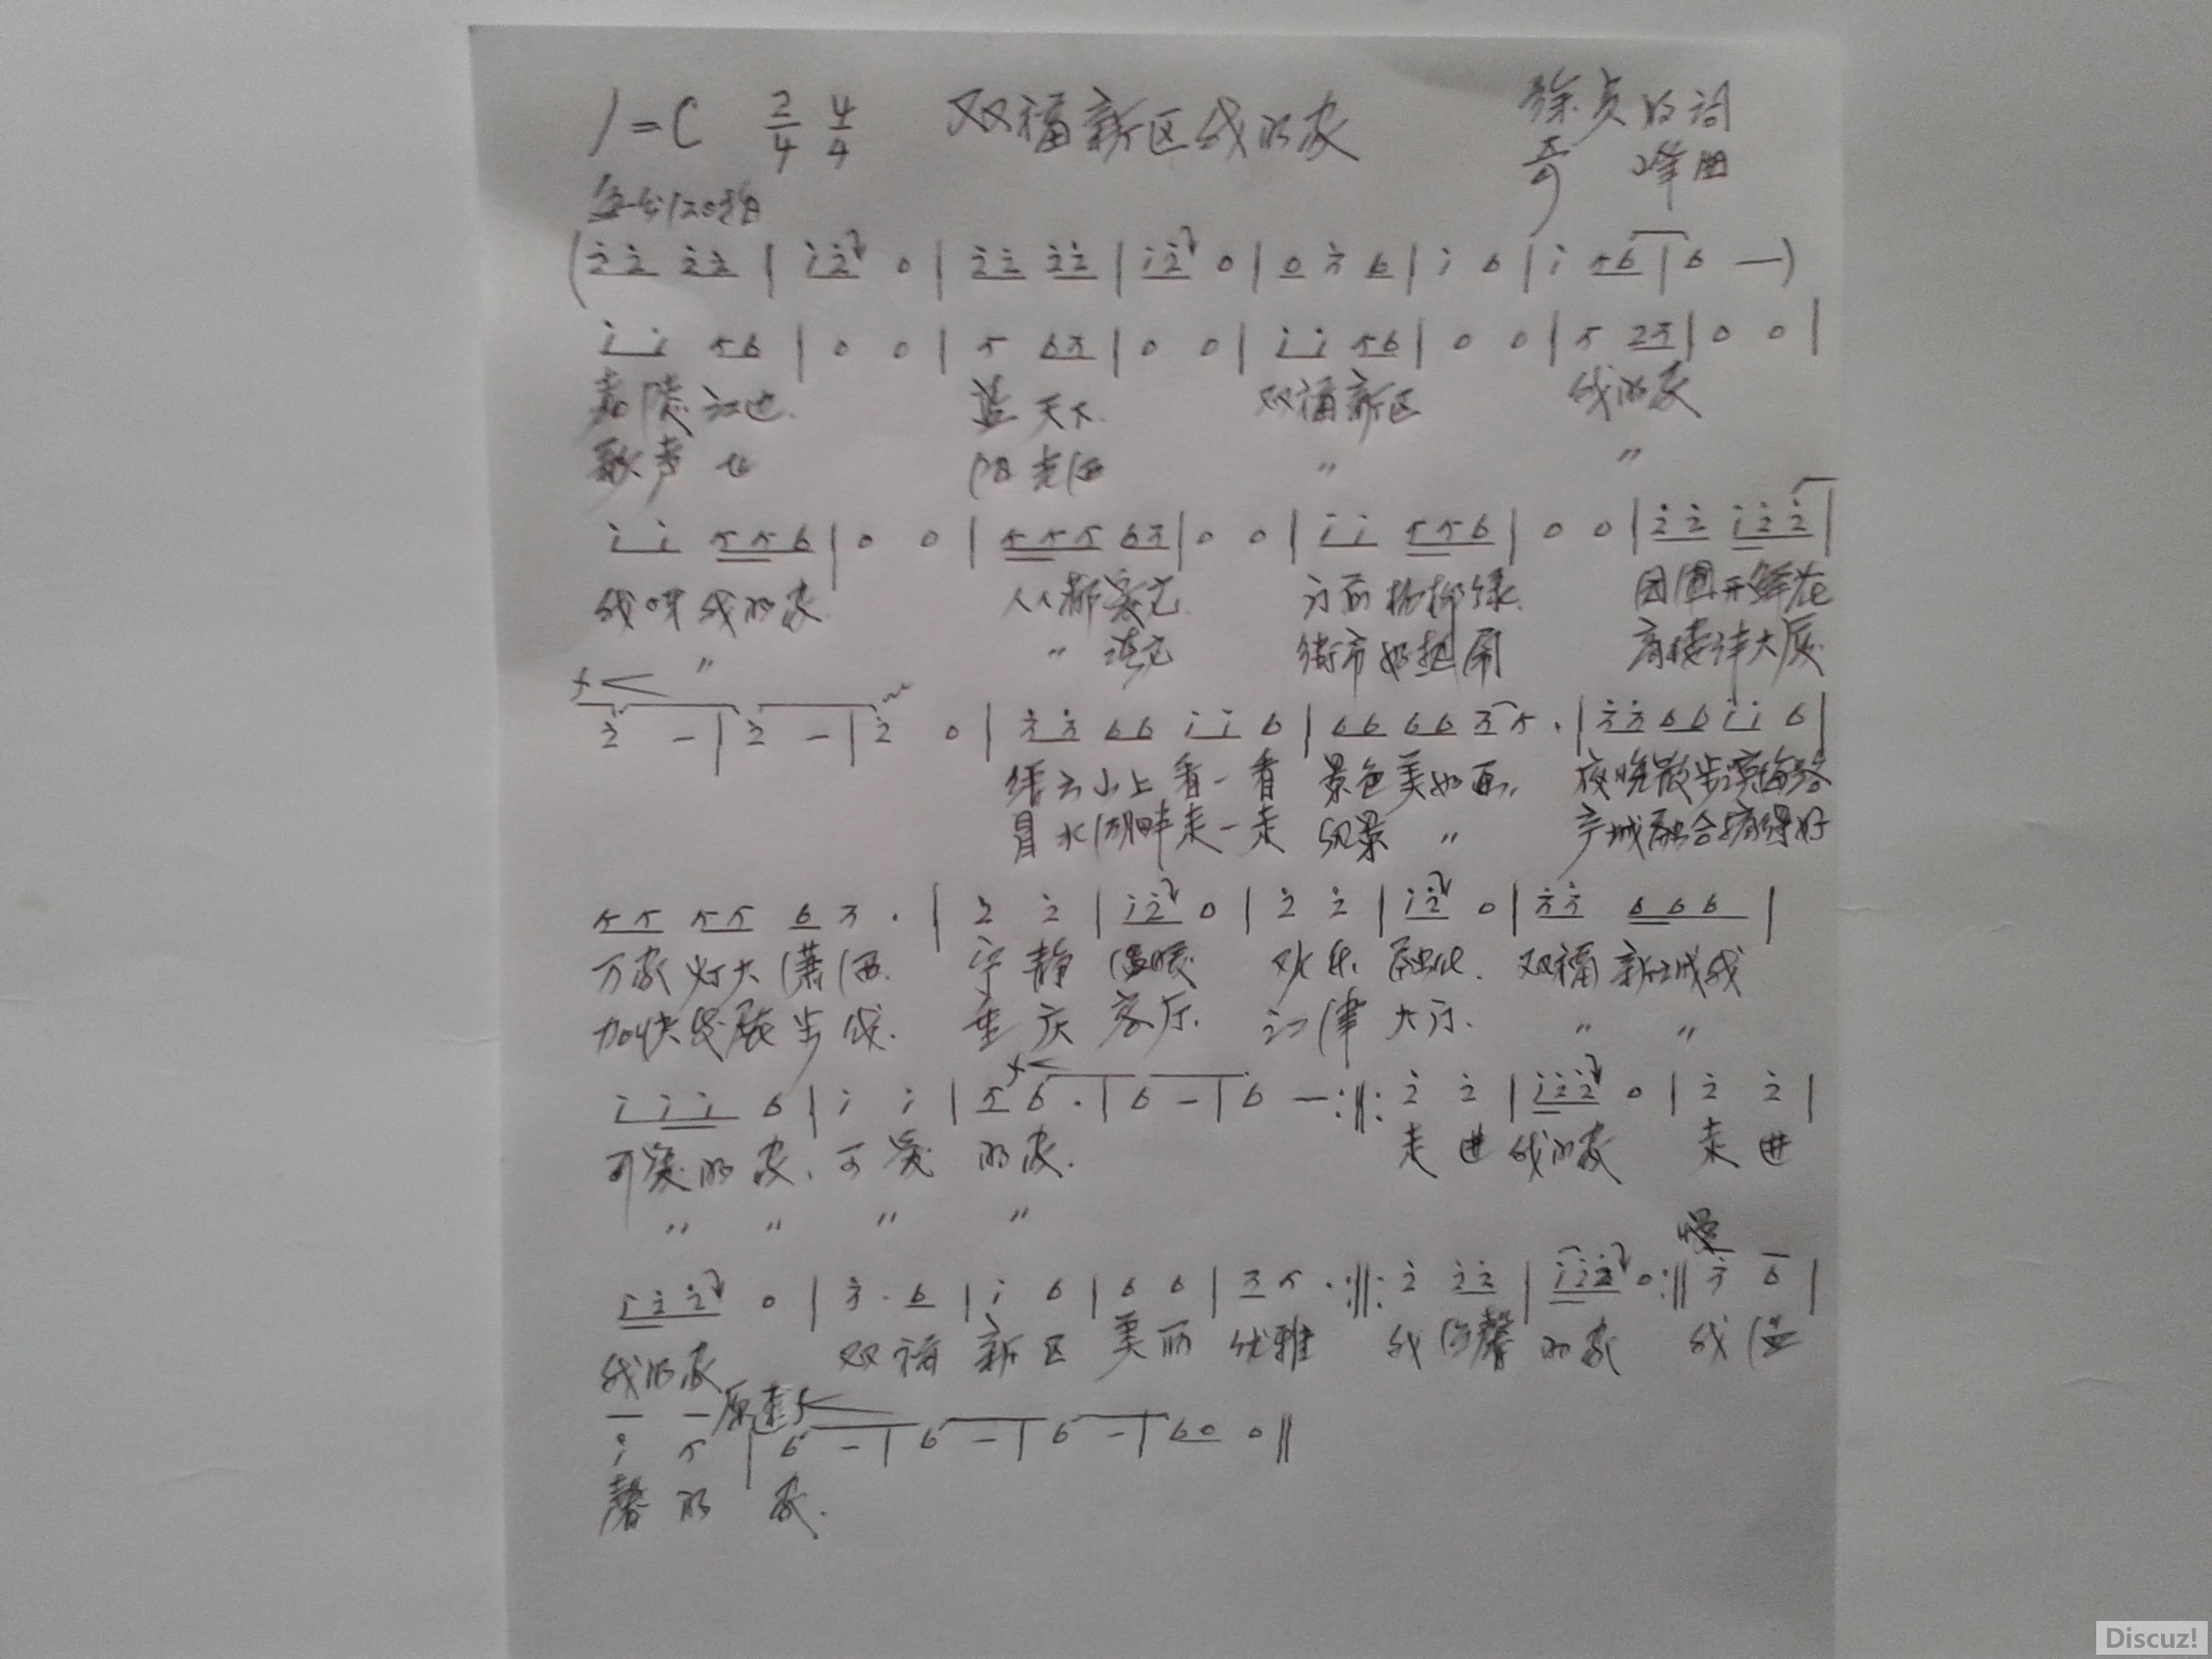 1=C 2/4 4/4 双福新区我的家 徐贞的词
奇峰曲
每分120拍
(2̇2̇ 2̇2̇ | i2̇ 0 | 2̇2̇ 2̇2̇ | i2̇ 0 | 0 3̇ 6 | i 6 | i 56 | 6 —)
i i 56 | 0 0 | 5 63 | 0 0 | i i 56 | 0 0 | 5 23 | 0 0 |
嘉陵江边. 蓝天下. 双福新区 我的家
歌声飞 阳光洒 〃 〃
i i 556 | 0 0 | 555 63 | 0 0 | i i 556 | 0 0 | 2̇2̇ i2̇2̇ |
我呀我的家 人人都爱它. 门前杨柳绿. 团圆开鲜花
〃 〃 街市 高楼伴大厦
f
2̇ - | 2̇ - | 2̇ 0 | 3̇3̇ 66 i i 6 | 66 66 35 . | 3̇3̇ 66 i i 6 |
缙云山上看一看 景色美如画, 夜晚散步
水湖畔走一走 风景 〃 产城融合搞得好
55 55 6 3 . | 2̇ 2̇ | i2̇ 0 | 2̇ 2̇ | i2̇ 0 | 3̇3̇ 666 |
万家灯火潇洒. 宁静温暖 欢乐融化. 双福新城我
加快发展步伐. 重庆客厅. 江津大门. 〃 〃
f
i i i 6 | i i | 5 6 . | 6 - | 6 — :‖: 2̇ 2̇ | i2̇2̇ 0 | 2̇ 2̇ |
可爱的家、可爱 的家. 走进我的家 走进
〃 〃 〃 〃
慢
i2̇2̇ 0 | 3̇ . 6 | i 6 | 6 6 | 3 5 . :‖: 2̇ 2̇2̇ | i i 2̇ 0 :‖ 3̇ 6 |
我的家 双福新区美丽优雅 我温馨的家 我温
原速 f
i 5 | 6 - | 6 - | 6 - | 60 0 ‖
馨的 家.
Discuz!